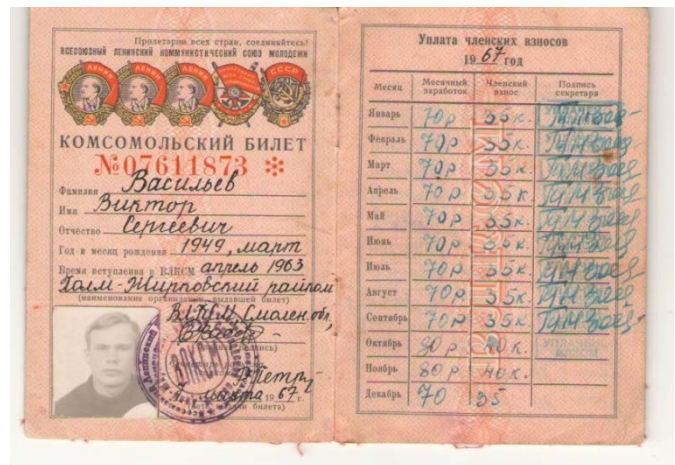 Пролетарии всех стран, соединяйтесь!
ВСЕСОЮЗНЫЙ ЛЕНИНСКИЙ КОММУНИСТИЧЕСКИЙ СОЮЗ МОЛОДЕЖИ
КОМСОМОЛЬСКИЙ БИЛЕТ
№07611873
Фамилия Васильев
Имя Виктор
Отчество Сергеевич
Год и месяц рождения 1949, март
Время вступления в ВЛКСМ апрель 1963
Холм-Жирковский райком
(наименование организации, выдавшей билет)
ВЛКСМ, Смолен. обл.
марта 1967 г.
Уплата членских взносов
1967 год
Месяц Месячный заработок Членский взнос Подпись секретаря
Январь 70р 35к.
Февраль 70р 35к.
Март 70р 35к.
Апрель 70р 35к
Май 70р 35к.
Июнь 70р 35к.
Июль 70р 35к.
Август 70р 35к.
Сентябрь 70р 35к.
Октябрь 80р 40к.
Ноябрь 80р 40к.
Декабрь 70 35